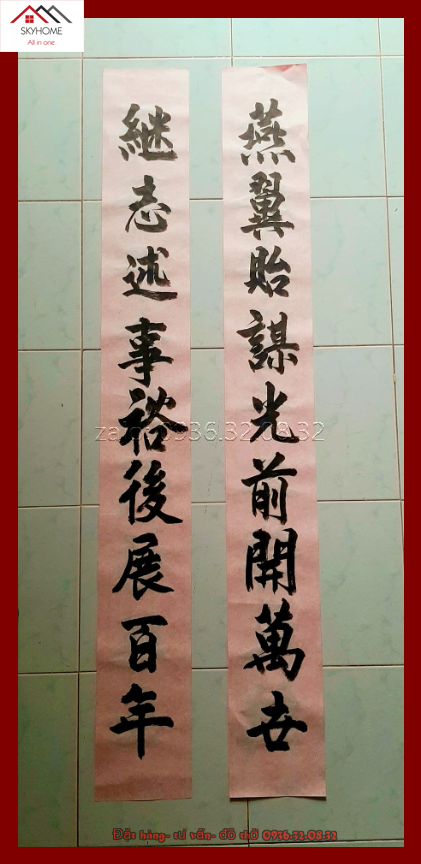 SKYHOME
All in one
燕翼貽謀光前開萬世
継志述事裕後展百年
zalo 0936.32.08.32
Đặt hàng- tư vấn- đồ thờ 0936.32.08.32